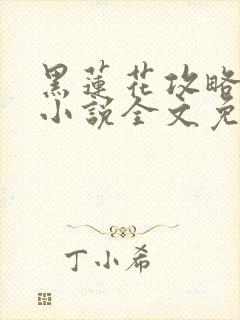 黑蓮花攻略
小說全文免
丁小希